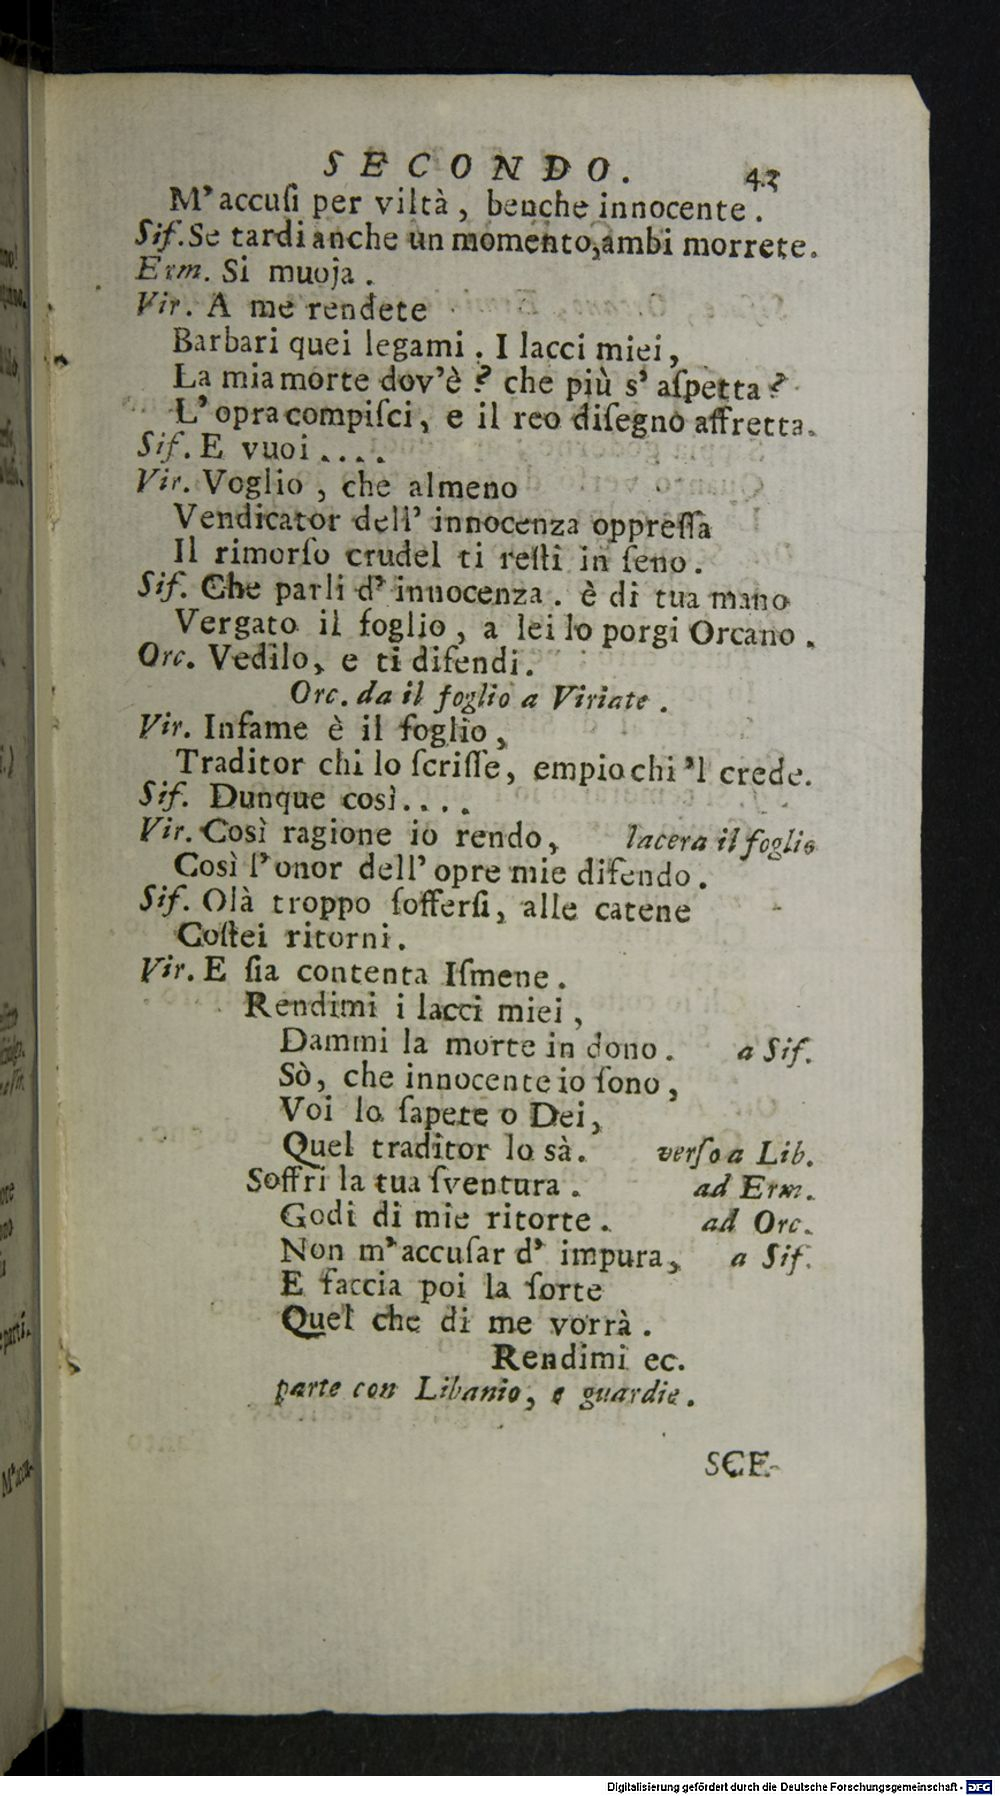 SECONDO. 43
M'accuſi per viltà, benche innocente.
Sif. Se tardi anche un momento, ambi morrete.
Erm. Si muoja.
Vir. A me rendete
Barbari quei legami. I lacci miei,
La mia morte dov'è? che più s'aſpetta?
L'opra compiſci, e il reo diſegno affretta.
Sif. E vuoi....
Vir. Voglio, che almeno
Vendicator dell'innocenza oppreſſa
Il rimorſo crudel ti reſti in ſeno.
Sif. Che parli d'innocenza. è di tua mano
Vergato il foglio, a lei lo porgi Orcano.
Orc. Vedilo, e ti difendi.
Orc. da il foglio a Viriate.
Vir. Infame è il foglio,
Traditor chi lo ſcriſſe, empio chi 'l crede.
Sif. Dunque così....
Vir. Così ragione io rendo, lacera il foglio
Così l'onor dell'opre mie difendo.
Sif. Olà troppo ſofferſi, alle catene
Coſtei ritorni.
Vir. E ſia contenta Iſmene.
Rendimi i lacci miei,
Dammi la morte in dono. a Sif.
Sò, che innocente io ſono,
Voi lo ſapete o Dei,
Quel traditor lo sà. verſo a Lib.
Soffri la tua ſventura. ad Erm.
Godi di mie ritorte. ad Orc.
Non m'accuſar d'impura, a Sif.
E faccia poi la ſorte
Quel che di me vorrà.
Rendimi ec.
parte con Libanio, e guardie.
SCE-
Digitalisierung gefördert durch die Deutsche Forschungsgemeinschaft - DFG